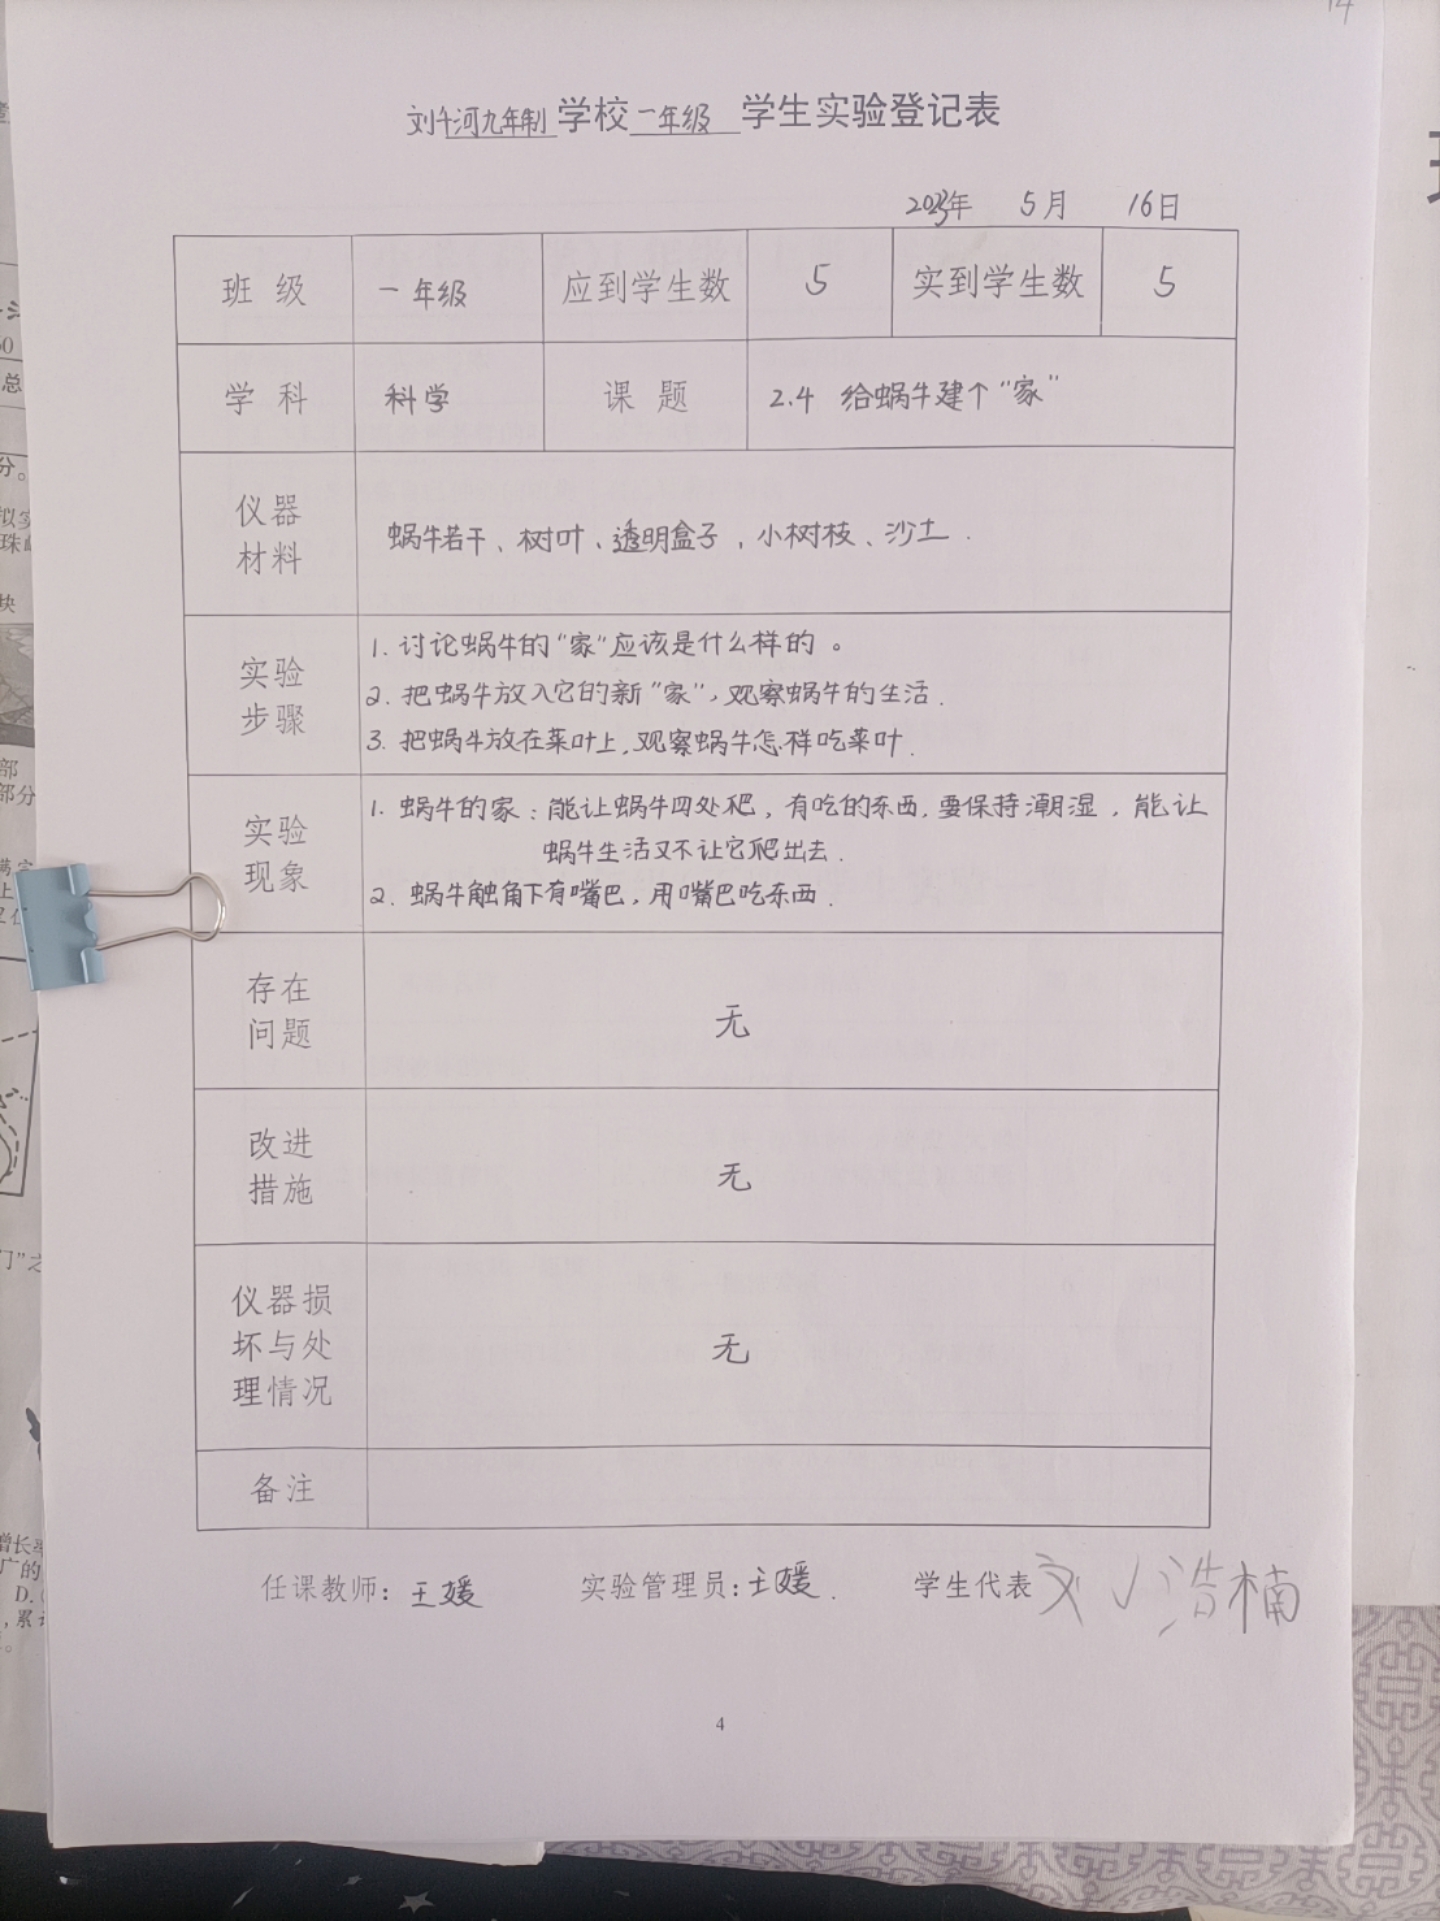 14
刘午河九年制学校一年级 学生实验登记表
2023年 5月 16日
班 级 一年级 应到学生数 5 实到学生数 5
学 科 科学 课 题 2.4 给蜗牛建个“家”
仪器
材料
蜗牛若干、树叶、透明盒子,小树枝、沙土.
实验
步骤
1. 讨论蜗牛的“家”应该是什么样的。
2. 把蜗牛放入它的新“家”,观察蜗牛的生活.
3. 把蜗牛放在菜叶上,观察蜗牛怎样吃菜叶.
实验
现象
1. 蜗牛的家:能让蜗牛四处爬,有吃的东西,要保持潮湿,能让
蜗牛生活又不让它爬出去.
2. 蜗牛触角下有嘴巴,用嘴巴吃东西.
存在
问题
无
改进
措施
无
仪器损
坏与处
理情况
无
备注
任课教师:王媛 实验管理员:王媛. 学生代表 刘浩楠
4